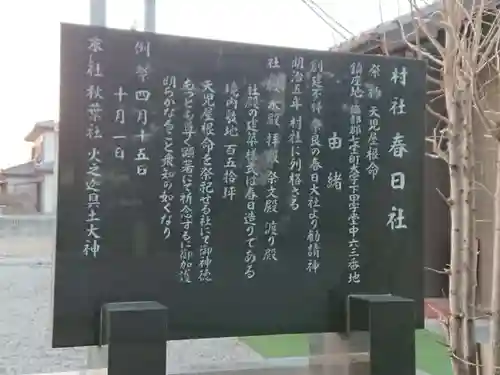 村社 春日社
祭神 天児屋根命
鎮座地 海部郡七宝町大字下田字堂中六三番地
由緒
創建不祥 奈良の春日大社より勧請神
明治五年 村社に列格さる
社殿 本殿 拝殿 祭文殿 渡り殿
社殿の建築様式は春日造りである
境内敷地 百五拾坪
天児屋根命を祭祀せる社にて御神徳
あつとも尊く顕著にて祈念するに御加護
明らかなること衆知の如くなり
例祭 四月十五日
十月一日
末社 秋葉社 火之迦具土大神